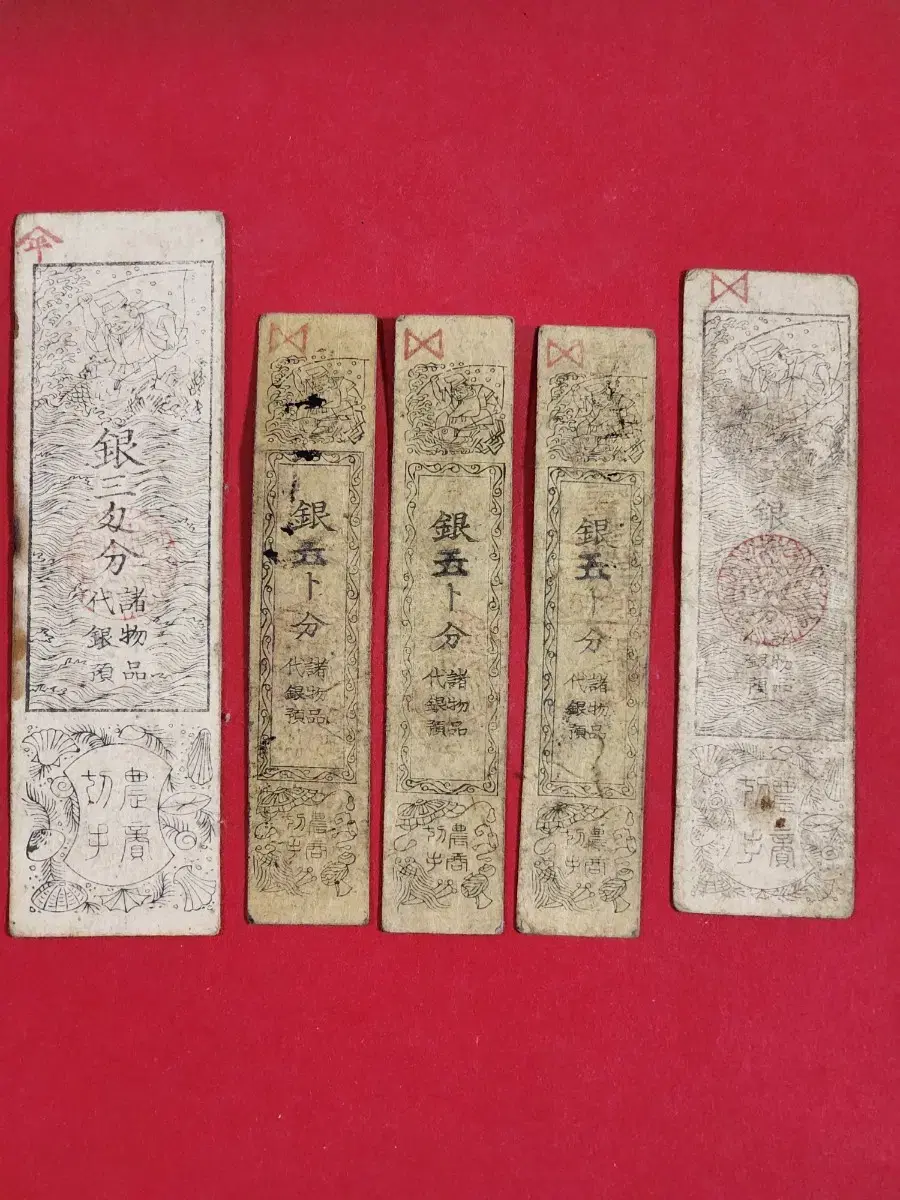 平
銀二匁分
諸物品
代銀預
農賣
切手
銀五卜分
諸物品
代銀預
農商
切手
銀五卜分
諸物品
代銀預
農商
切手
銀五卜分
諸物品
代銀預
農商
切手
銀
物品
銀預
農賣
切手